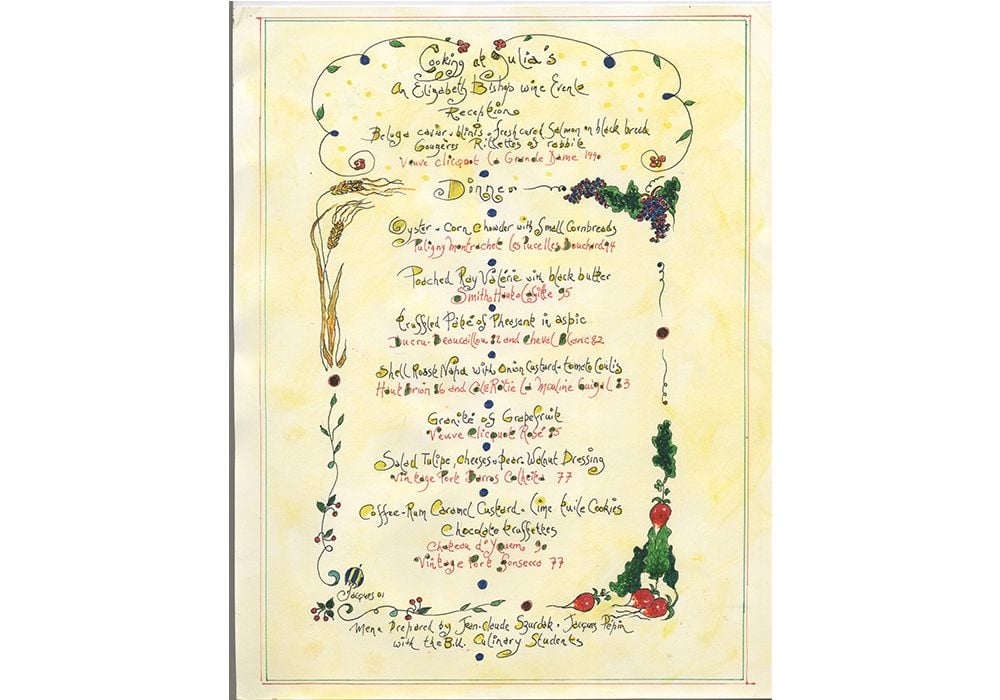 Cooking at Julia's
An Elizabeth Bishop wine Event
Reception
Beluga caviar - blinis - fresh cured Salmon on black bread
Gougères Rillettes of rabbit
Veuve Clicquot La Grande Dame 1990
Dinner
Oyster - Corn Chowder with Small Cornbreads
Puligny Montrachet Les Pucelles Bouchard 94
Poached Ray Valérie with black butter
Smith Haut-Lafitte 95
Truffled Pâté of Pheasant in aspic
Ducru-Beaucaillou 82 and Cheval Blanc 82
Shell Roast Napa with Onion Custard - tomato Coulis
Haut Brion 86 and Côte Rôtie La Mouline Guigal 83
Granité of Grapefruit
Veuve Clicquot Rosé 85
Salad Tulipe, cheeses - pear - Walnut Dressing
Vintage Port Barros Colheita 77
Coffee-Rum Caramel Custard - Lime tuile Cookies
Chocolate truffettes
Chateau d'Yquem 90
Vintage Port Fonseca 77
Jacques 01
Menu Prepared by Jean-Claude Szurdak - Jacques Pépin
with the B.U. Culinary Students